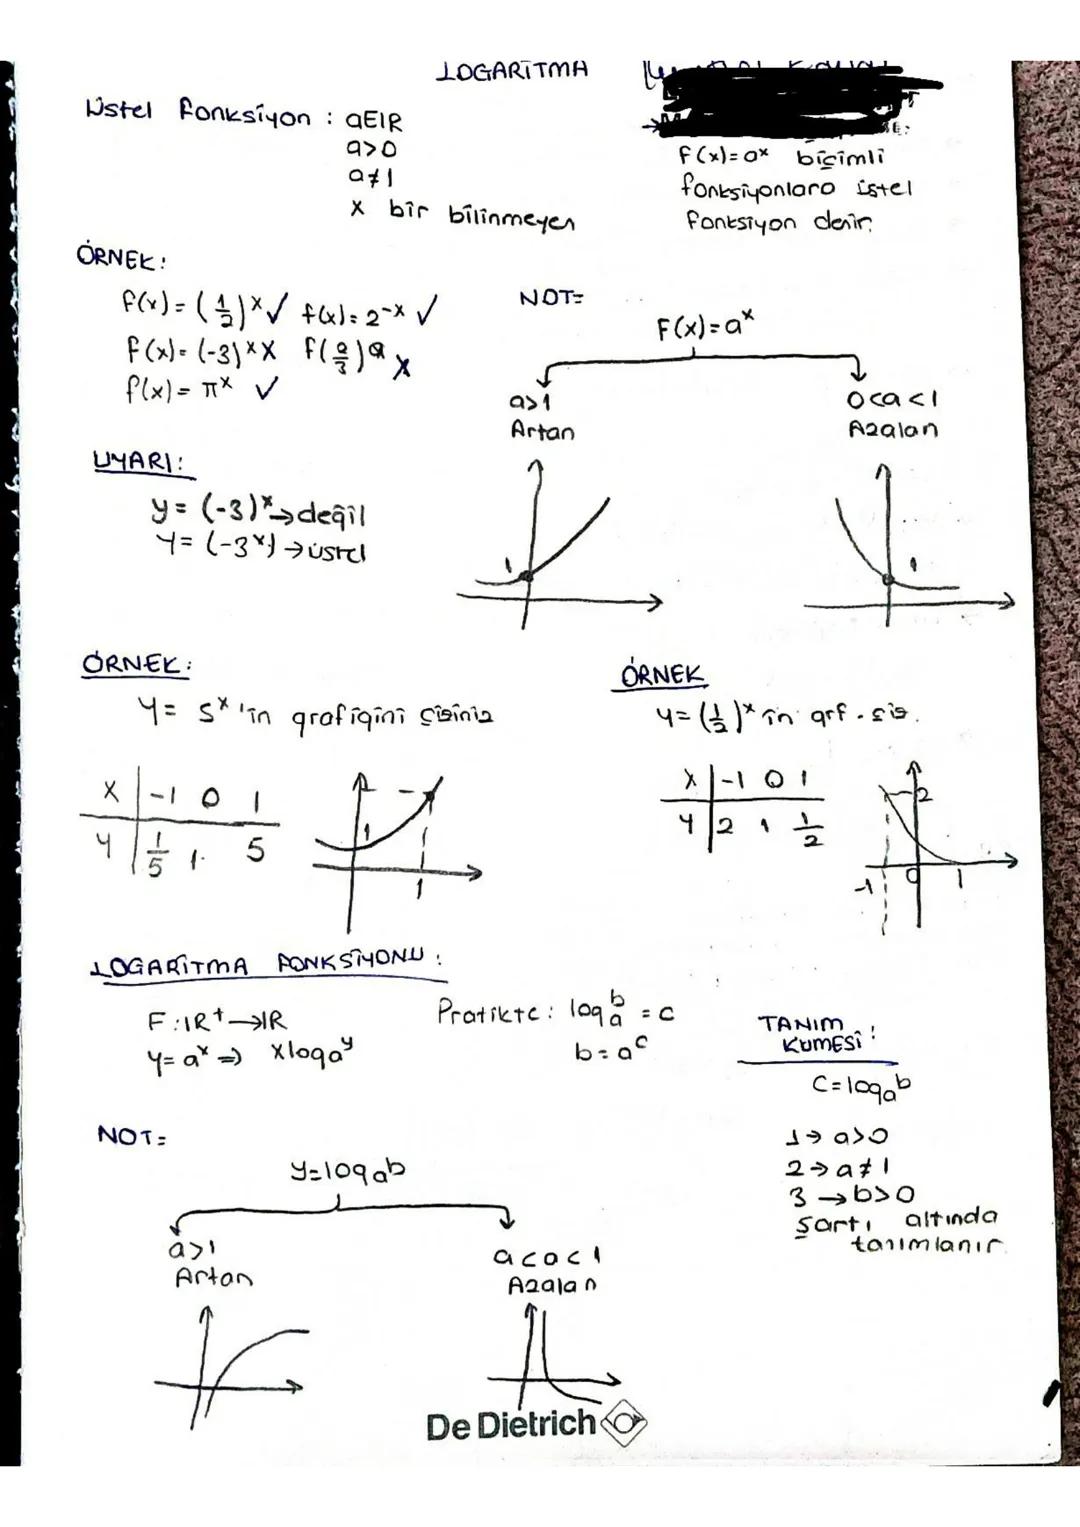 LOGARİTMA
Üstel fonksiyon : a∈IR
a>0
a≠1
x bir bilinmeyen
f(x)=a^x biçimli
fonksiyonlara üstel
fonksiyon denir.
ÖRNEK:
f(x)=(1/2)^x ✓ f(x)=2^-x ✓
f(x)=(-3)^x X f(a/3)^a X
f(x)=π^x ✓
NOT=
F(x)=a^x
a>1
Artan
0<a<1
Azalan
1
1
UYARI:
y=(-3)^x→değil
y=(-3^x)→üstel
ÖRNEK:
y=5^x 'in grafiğini çiziniz
x | -1 0 1
y | 1/5 1 5
1
1
ÖRNEK
y=(1/2)^x in grf. çiz.
x | -1 0 1
y | 2 1 1/2
2
-1 0 1
LOGARİTMA FONKSİYONU :
F:IR+→IR
y=a^x ⇒ xlog_a^y
Pratikte: log_a^b = c
b=a^c
TANIM
KÜMESİ :
C=log_a b
1→ a>0
2→a≠1
3→b>0
şartı altında
tanımlanır.
NOT=
y=log_a b
a>1
Artan
a<0<1
Azalan
De Dietrich